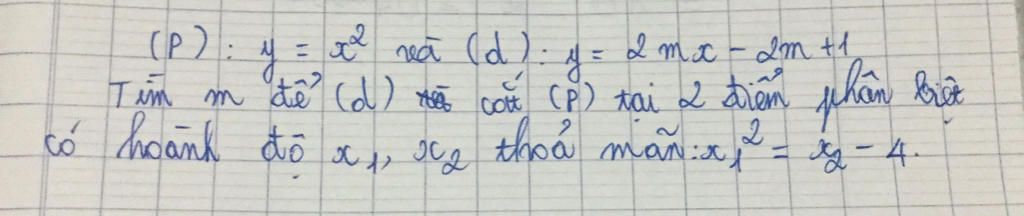 (P): y = x² và (d): y = 2mx - 2m + 1
Tìm m để (d) cắt (P) tại 2 điểm phân biệt
có hoành độ x₁, x₂ thoả mãn: x₁² = x₂ - 4.